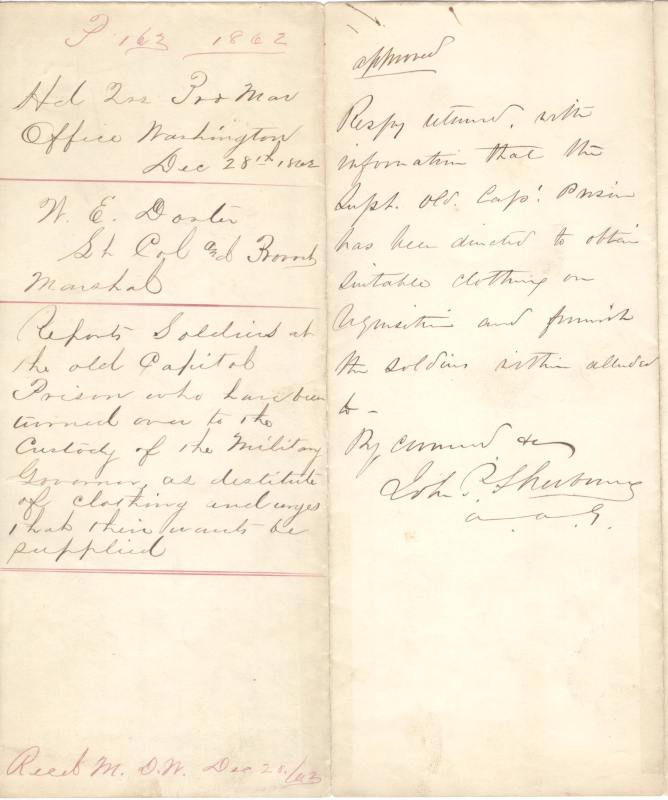 P 162 1862
Hd Qrs Pro Mar
Office Washington
Dec 28th 1862
W. E. Doster
Lt Col and Provost
Marshal
Reports Soldiers at
the old Capitol
Prison who have been
turned over to the
Custody of the Military
Governor, as destitute
of clothing and urges
that their wants be
supplied
Recd M. D. W. Dec 28/62
approved
Respy returned, with
information that the
Supt. Old. Cap'. Prison
has been directed to obtain
suitable clothing on
requisition and furnish
the soldiers within alluded
to -
By command &c
John P. Sherburne
a. a. G.